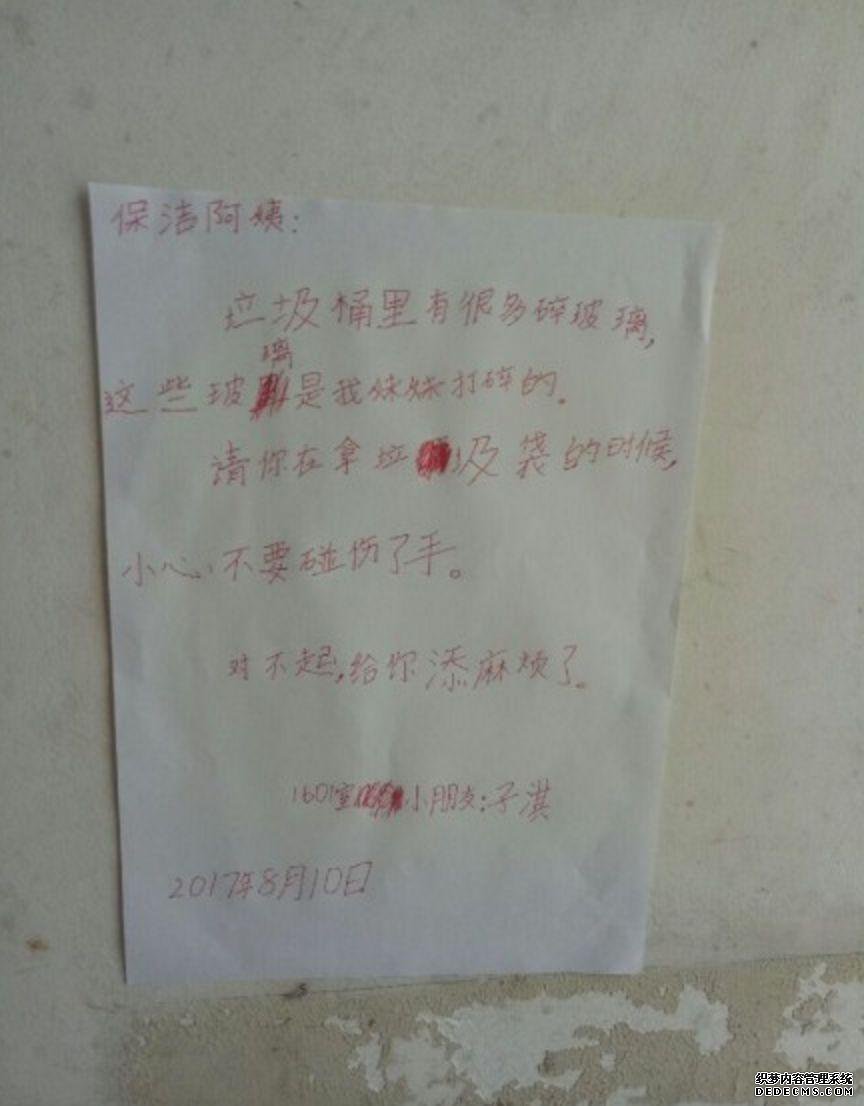 保洁阿姨:
垃圾桶里有很多碎玻璃,
这些玻璃是我妹妹打碎的。
请你在拿垃圾袋的时候,
小心,不要碰伤了手。
对不起,给你添麻烦了。
1601室小朋友:子淇
2017年8月10日
织梦内容管理系统
DEDECMS.COM